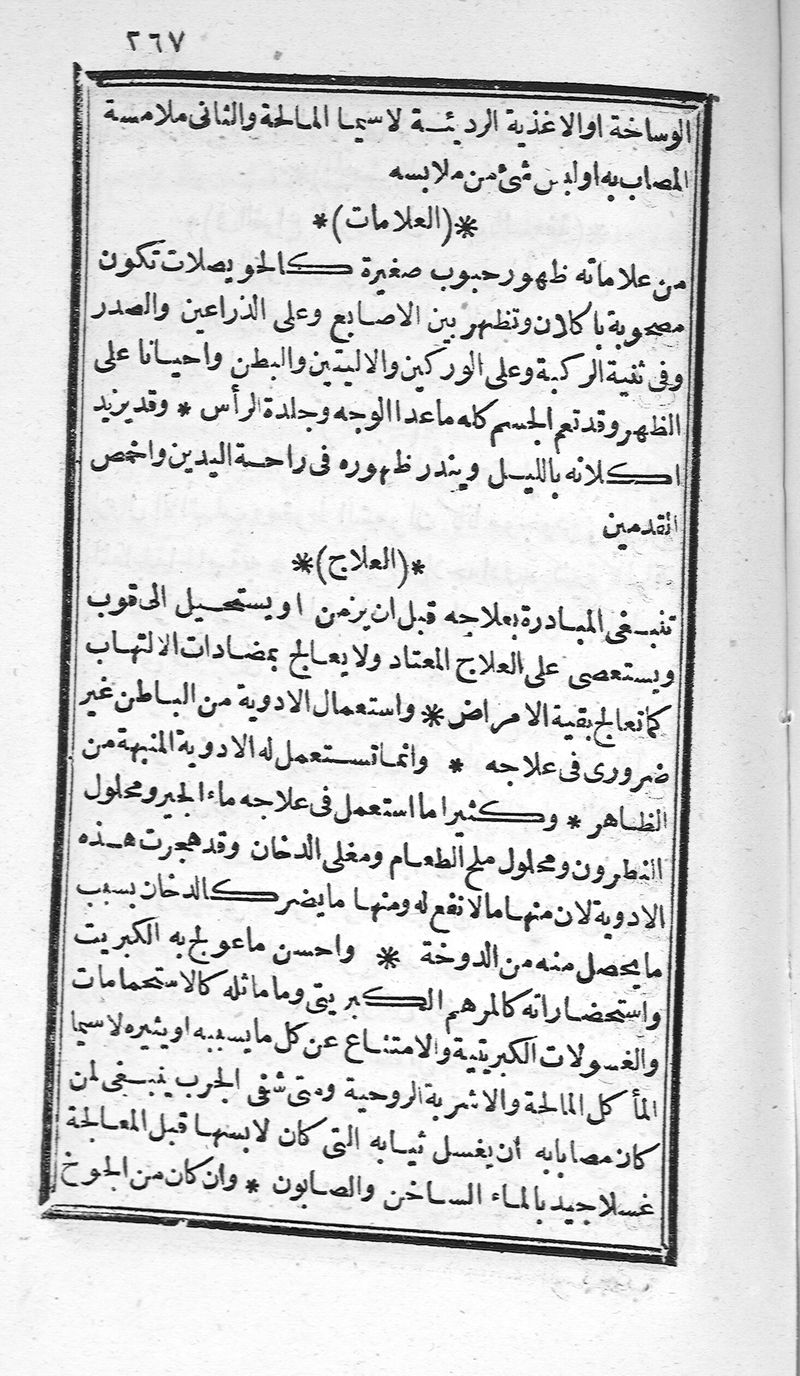 ٢٦٧
الوساخة او الاغذية الرديئة لاسيما المالحة والثانى ملامسة
المصاب به او لبس شئ من ملابسه
*(العلامات)*
من علاماته ظهور حبوب صغيرة كالحويصلات تكون
مصحوبة باكلان وتظهر بين الاصابع وعلى الذراعين والصدر
وفى ثنية الركبة وعلى الوركين والاليتين والبطن واحيانا على
الظهر وقد تعم الجسم كله ماعدا الوجه وجلدة الرأس * وقد يزيد
اكلانه بالليل ويندر ظهوره فى راحة اليدين واخمص
القدمين
*(العلاج)*
تنبغى المبادرة بعلاجه قبل ان يزمن او يستحيل الى قوب
ويستعصى على العلاج المعتاد ولا يعالج بمضادات الالتهاب
كما تعالج بقية الامراض * واستعمال الادوية من الباطن غير
ضرورى فى علاجه * وانما تستعمل له الادوية المنبهة من
الظاهر * وكثيرا ما استعمل فى علاجه ماء الجير ومحلول
النطرون ومحلول ملح الطعام ومغلى الدخان وقد هجرت هذه
الادوية لان منها مالا نفع له ومنها ما يضر كالدخان بسبب
ما يحصل منه من الدوخة * واحسن ما عولج به الكبريت
واستحضاراته كالمرهم الكبريتى وما ماثله كالاستحمامات
والغسولات الكبريتية والامتناع عن كل ما يسببه او يثيره لاسيما
المأكل المالحة والاشربة الروحية ومتى شفى الجرب ينبغى لمن
كان مصابا به أن يغسل ثيابه التى كان لابسها قبل المعالجة
غسلا جيد بالماء الساخن والصابون * وان كان من الجوخ